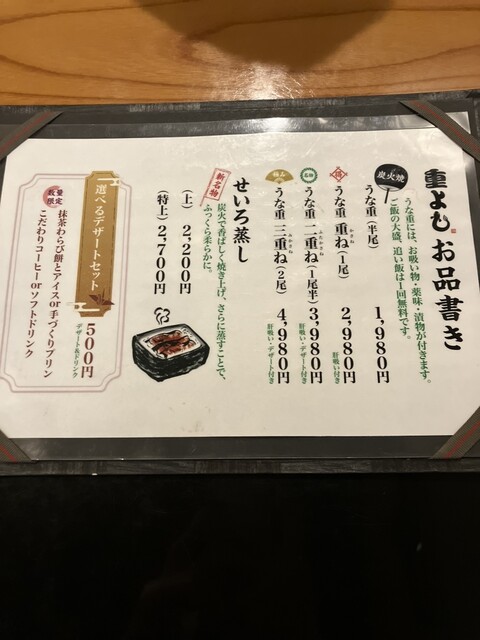 重よし お品書き
うな重には、お吸い物・薬味・漬物が付きます。
ご飯の大盛、追い飯は1回無料です。
炭火焼
うな重(半尾) 1,980円
うな重 重ね(1尾) 2,980円
かさね
肝吸い付き
名物
うな重 二重ね(1尾半) 3,980円
ふたかさね
肝吸い・デザート付き
極み
うな重 三重ね(2尾) 4,980円
みかさね
肝吸い・デザート付き
せいろ蒸し
新名物
炭火で香ばしく焼き上げ、さらに蒸すことで、
ふっくら柔らかに。
(上) 2,200円
(特上) 2,700円
選べるデザートセット 500円
デザート&ドリンク
数量限定
抹茶わらび餅とアイスor手づくりプリン
こだわりコーヒーorソフトドリンク